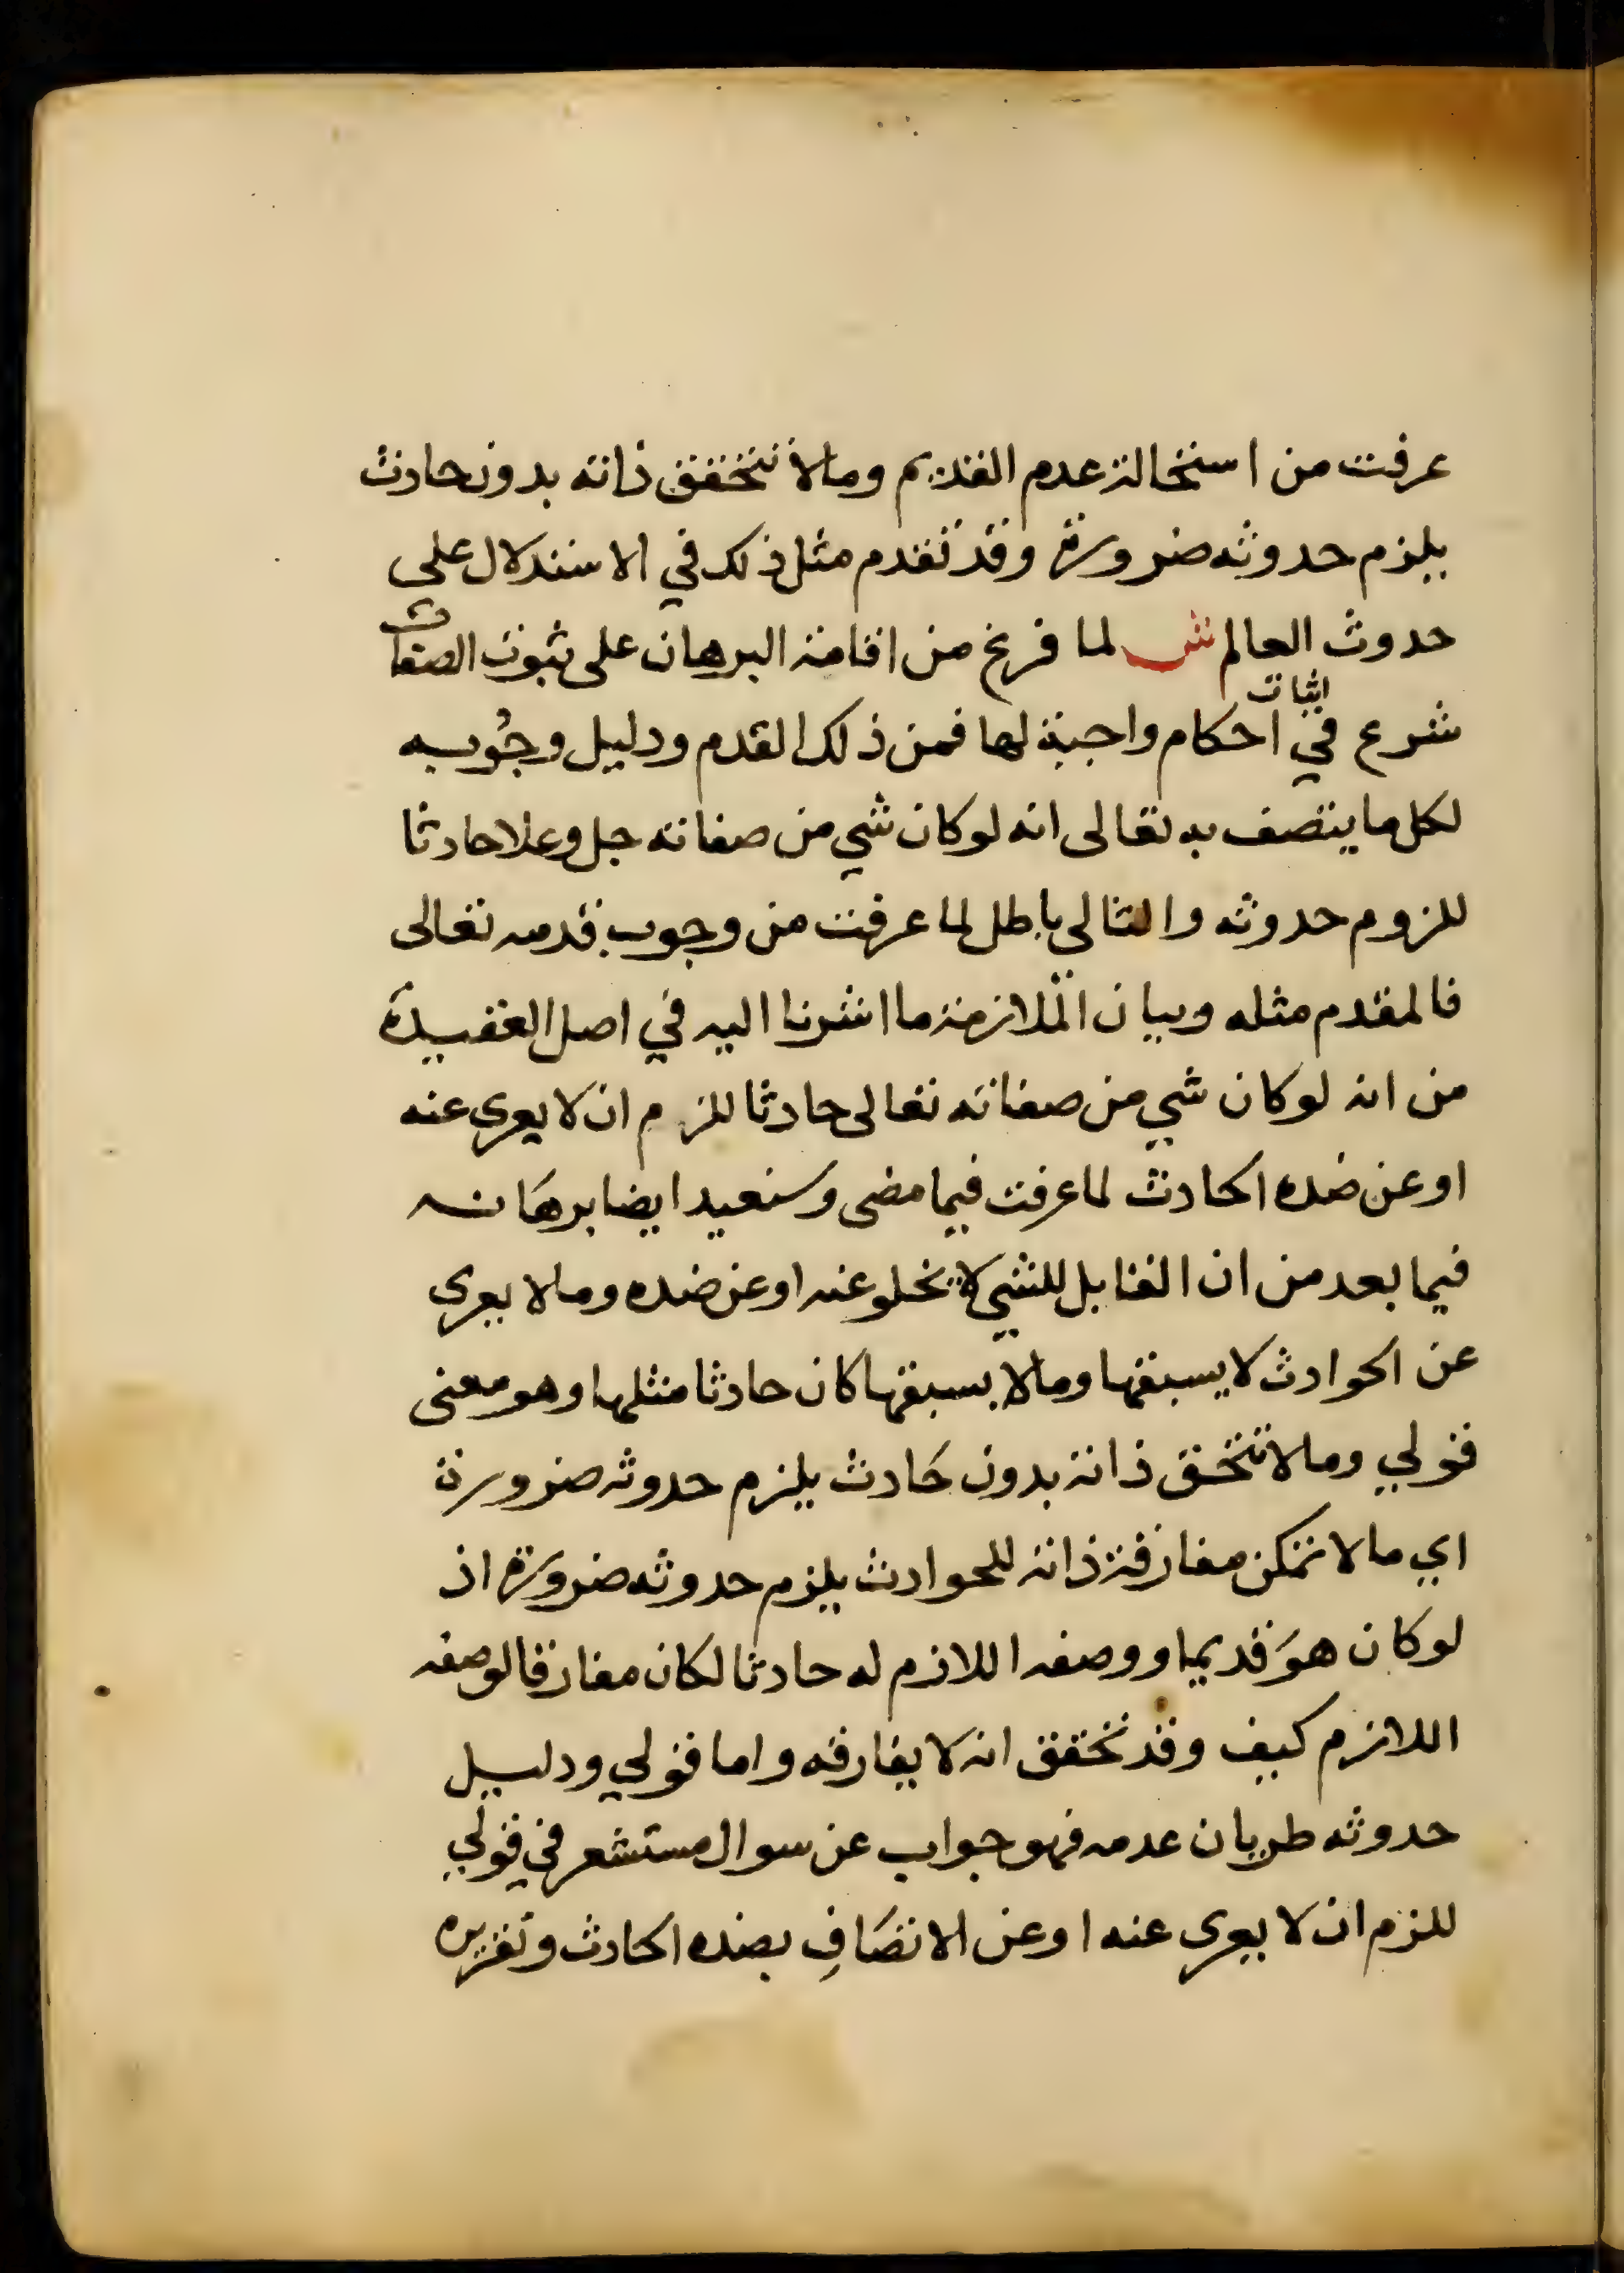 عرفت من استحالة عدم القديم وما لا تتحقق ذاته بدون حادث
يلزم حدوثه ضرورة وقد تقدم مثل ذلك في الاستدلال على
حدوث العالم ش لما فرغ من اقامة البرهان على ثبوت الصفات
شرع في اثبات احكام واجبة لها فمن ذلك القدم ودليل وجوبه
لكل ما يتصف به تعالى انه لو كان شي من صفاته جل وعلا حادثا
للزم حدوثه والتالي باطل لما عرفت من وجوب قدمه تعالى
فالمقدم مثله وبيان الملازمة ما اشرنا اليه في اصل العقيدة
من انه لو كان شي من صفاته تعالى حادثا للزم ان لا يعرى عنه
او عن ضده الحادث لما عرفت فيما مضى وسنعيد ايضا برهانه
فيما بعد من ان القابل للشي لا يخلو عنه او عن ضده وما لا يعرى
عن الحوادث لا يسبقها وما لا يسبقها كان حادثا مثلها وهو معنى
قولي وما لا تتحقق ذاته بدون حادث يلزم حدوثه ضرورة
اي ما لا تمكن مفارقة ذاته للحوادث يلزم حدوثه ضرورة اذ
لو كان هو قديما ووصفه اللازم له حادثا لكان مفارقا لوصفه
اللازم كيف وقد تحقق انه لا يفارقه واما قولي ودليل
حدوثه طريان عدمه فهو جواب عن سوال مستشعر في قولي
للزم ان لا يعرى عنه او عن الاتصاف بضده الحادث وتقريره